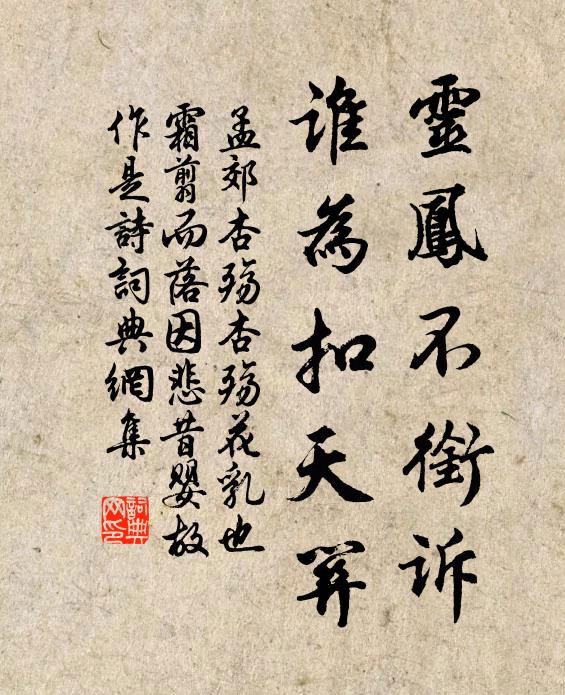 靈鳳不銜訴
誰為扣天關
孟郊杏殤杏殤花乳也
霜翦而落因悲昔嬰故
作是詩詞典網集
詞典網印